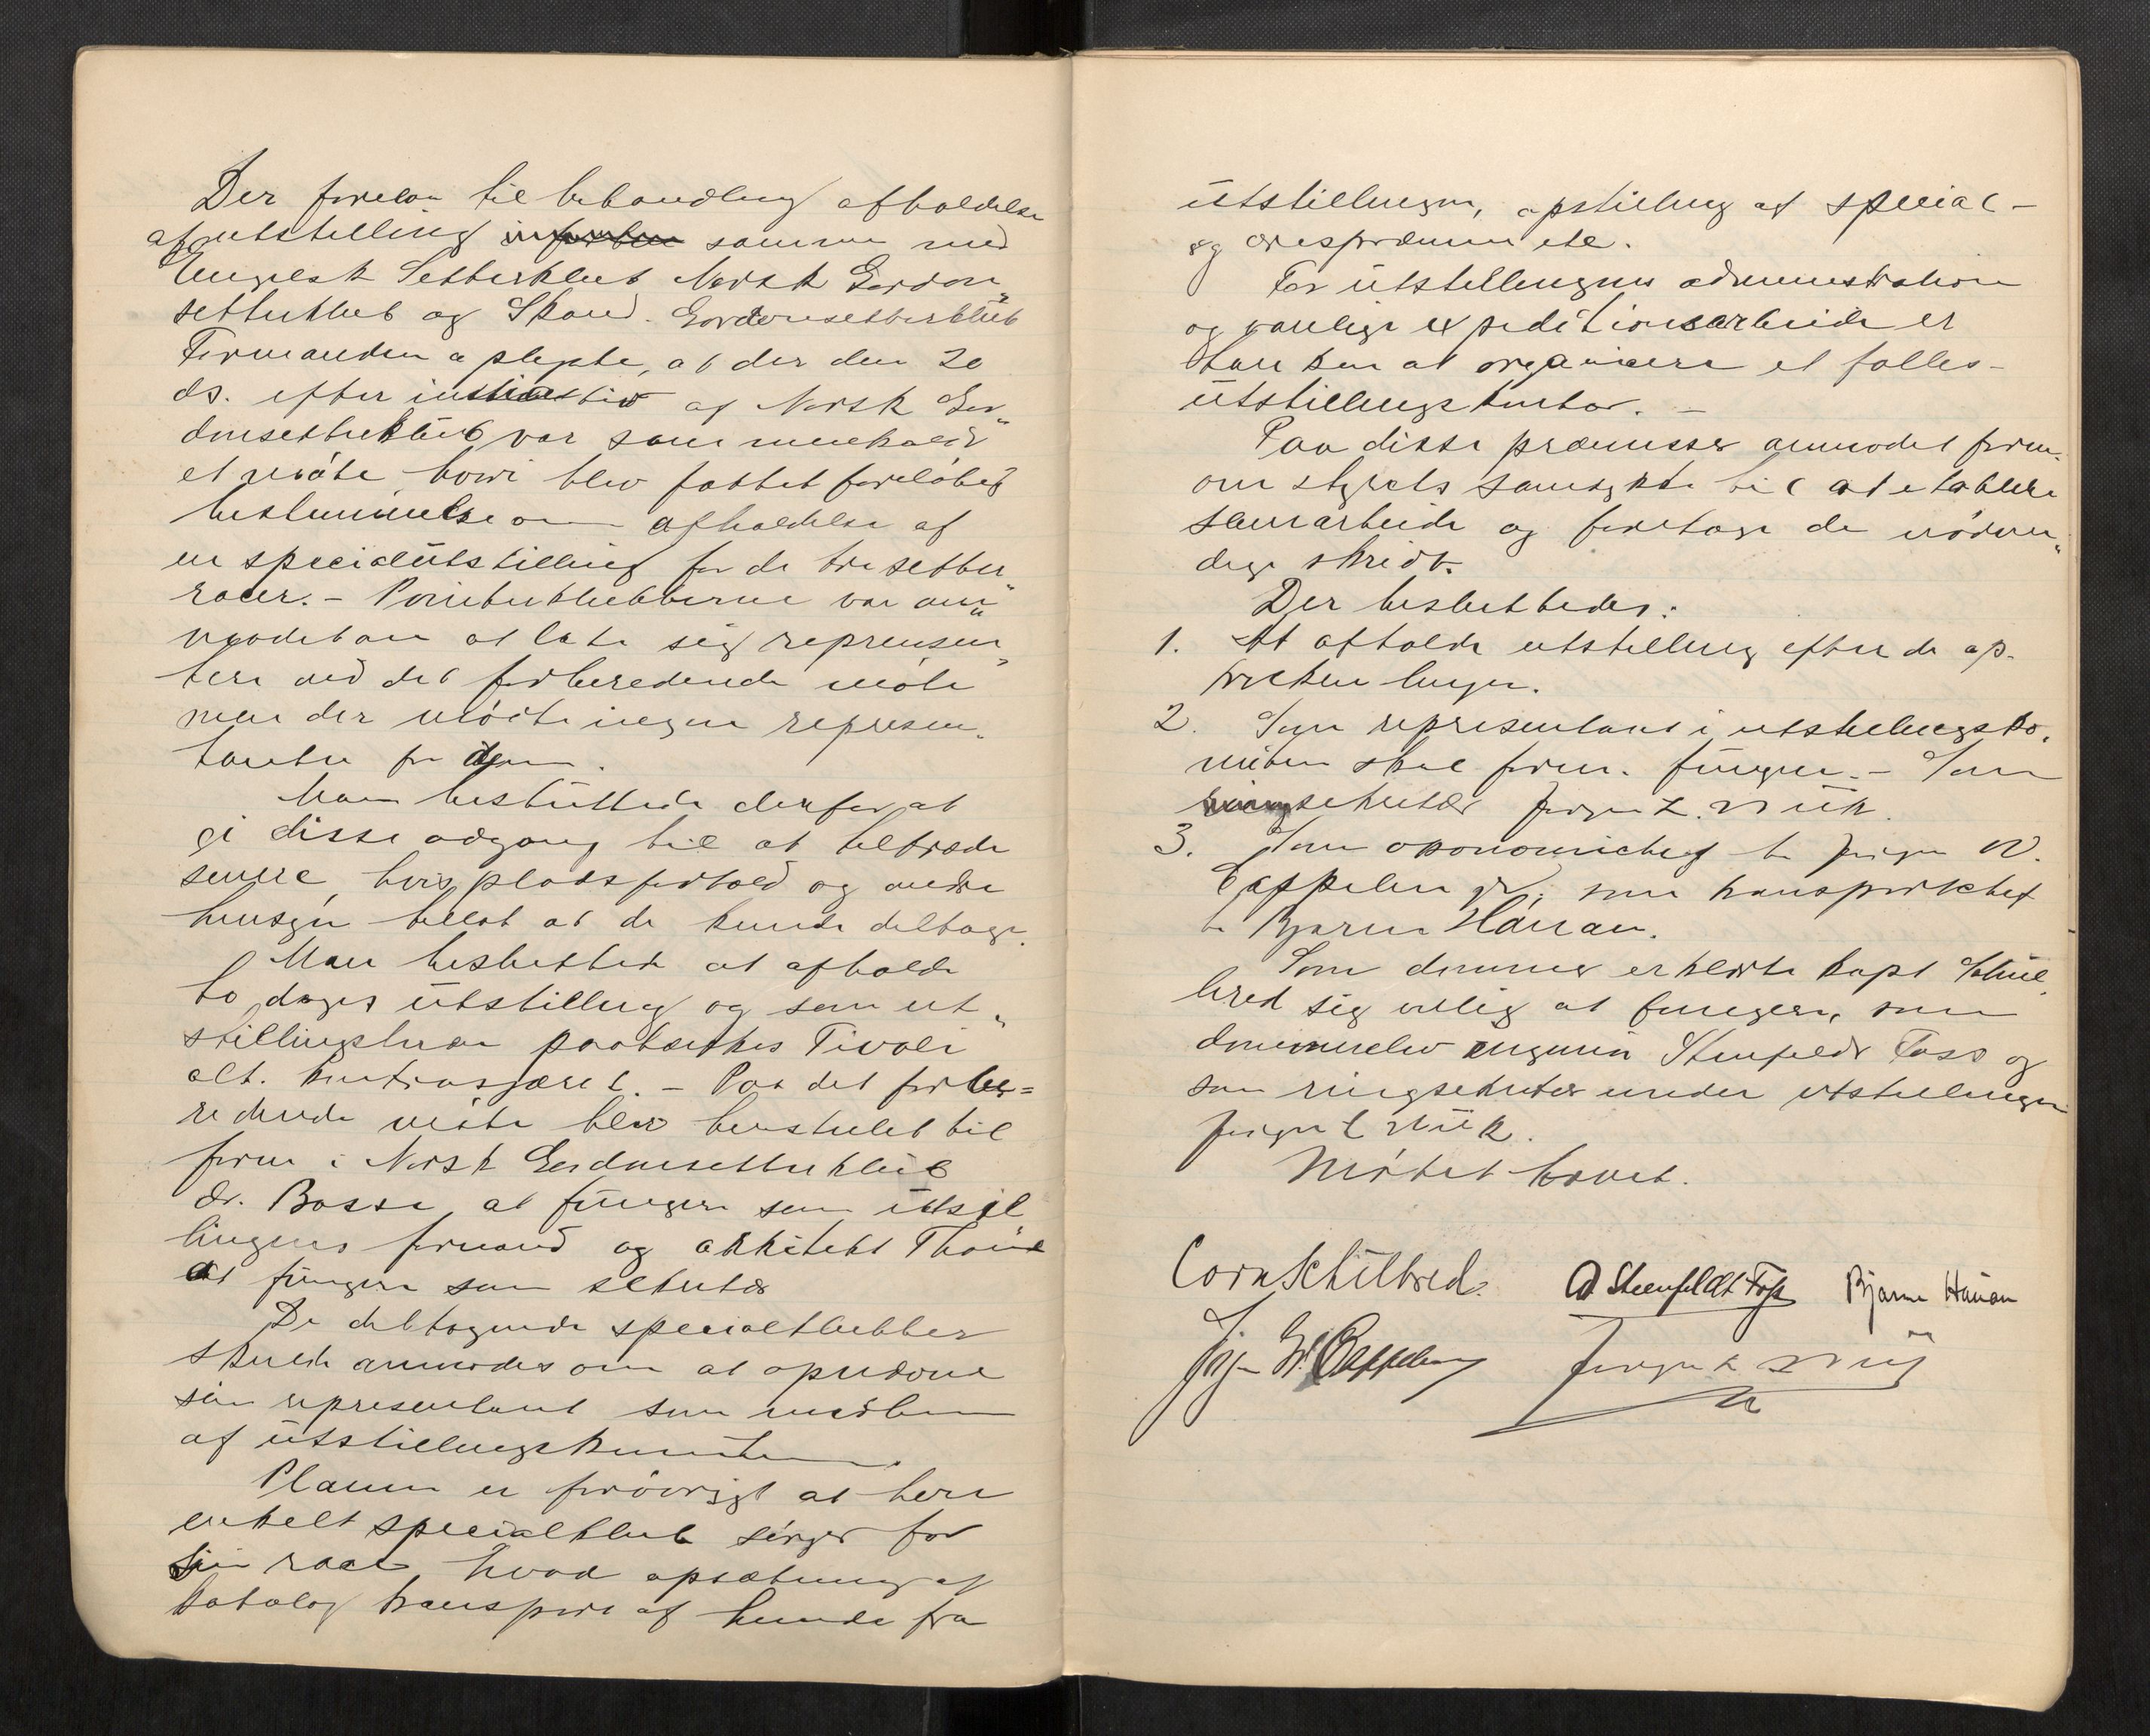 Der forelaa til behandling afholdelse
af utstilling sammen med
Engelsk Setterklub Norsk Gordon„
setterklub og Skand. Gordonsetterklub
Formanden oplyste, at der den 20
ds. efter initiativ af Norsk Gor„
donsetterklub var sammenkaldt
et møte, hvori blev fattet foreløbig
bestemmelse om afholdelse af
en specialutstilling for de tre setter„
racer. – Pointerklubberne var an„
modet om at late sig represen„
tere ved det forberedende møte
men der møtte ingen represen„
tanter for dem.
Man besluttede derfor at
gi disse adgang til at tiltræde
senere, hvis pladsforhold og andre
hensyn tillot at de kunde deltage.
Man besluttede at afholde
to dages utstilling og som ut„
stillingsterræn paatænktes Tivoli
alt. . – Paa det forbe=
redende møte blev henstillet til
form i Norsk Gordonsetterklub
dr. Bosse at fungere som utstil
lingens formand og arkitekt
at fungere som sekretær
De deltagende specialklubber
skulde anmodes om at opnævne
sin representant som medlem
af utstillingskomiteen.
Planen er forøvrigt at hver
enkelt specialklub sørger for
sin race, hvad opsætning af
katalog transport af hunde fra
utstillingen, opstilling af special-
og ærespræmier etc.
For utstillingens administration
og vanlige expeditionsarbeide er
tanken at organisere et fælles-
utstillingskontor. –
Paa disse præmisser anmodet form.
om styrets samtykke til at etablere
samarbeide og foretage de nødven„
dige skridt.
Der besluttedes:
1. At afholde utstilling efter de op-
trukne linjer.
2. Som representant i utstillingsko„
miteen skal form. fungere. – Som
sekretær Jørgen L. Wiik.
3. Som økonomichef hr Jørgen W.
Cappelen jr, som transportchef
hr Bjarne Hauan.
Som dommer erklærte kapt Schil„
bred sig villig at fungere, som
dommerelev ingeniør Steenfeldt Foss og
som ringsekretær under utstillingen
Jørgen L Wiik.
Møtet hævet.
Corn Schilbred. A Steenfeldt Foss Bjarne Hauan
Jørgen W. Cappelen Jørgen L Wiik